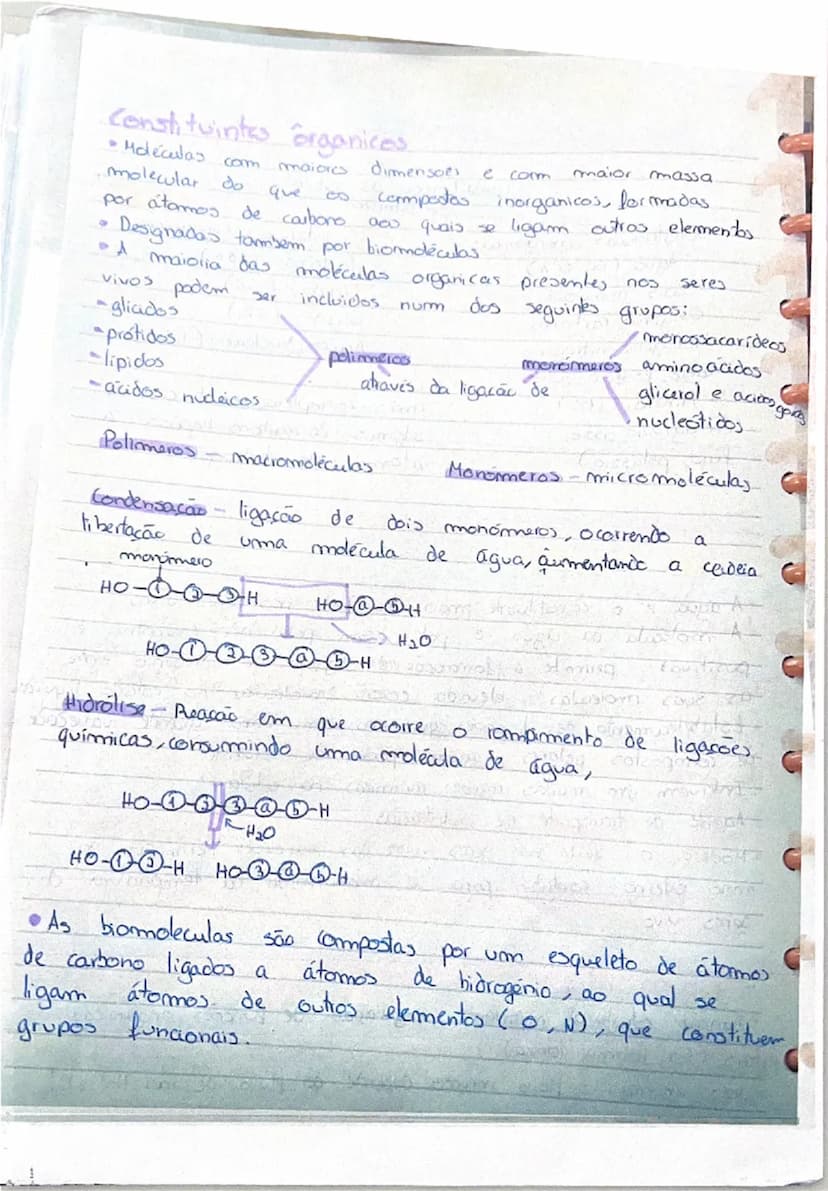 Constituintes ôrganicos
• Moléculas com maiores dimensoes e com maior massa
molecular do que os compostos inorganicos, formadas
por átomos de carbono aos quais se ligam outros elementos
• Designadas tambem por biomoléculas
• A maioria das moléculas organicas presentes nos seres
vivos podem ser incluidos num dos seguintes grupos:
- glicidos
- prótidos
- lípidos
- ácidos nucleicos
polimeros
através da ligação de
monómeros
monossacarídeos
aminoácidos
glicerol e acidos gordos
nucleótidos
Polimeros - macromoléculas
Monómeros - micromoléculas
Condensação - ligação de dois monómeros, ocorrendo a
libertação de uma molécula de água, aumentando a cadeia
monómero
HO-1-2-3-H HO-a-b-H
H2O
HO-1-2-3-a-b-H
Hidrólise - Reação em que ocorre o rompimento de ligações
químicas, consumindo uma molécula de água,
HO-1-2-3-a-b-H
H2O
HO-1-2-H HO-3-a-b-H
• As biomoleculas são compostas por um esqueleto de átomos
de carbono ligados a átomos de hidrogénio, ao qual se
ligam átomos de outros elementos (O, N), que constituem
grupos funcionais.